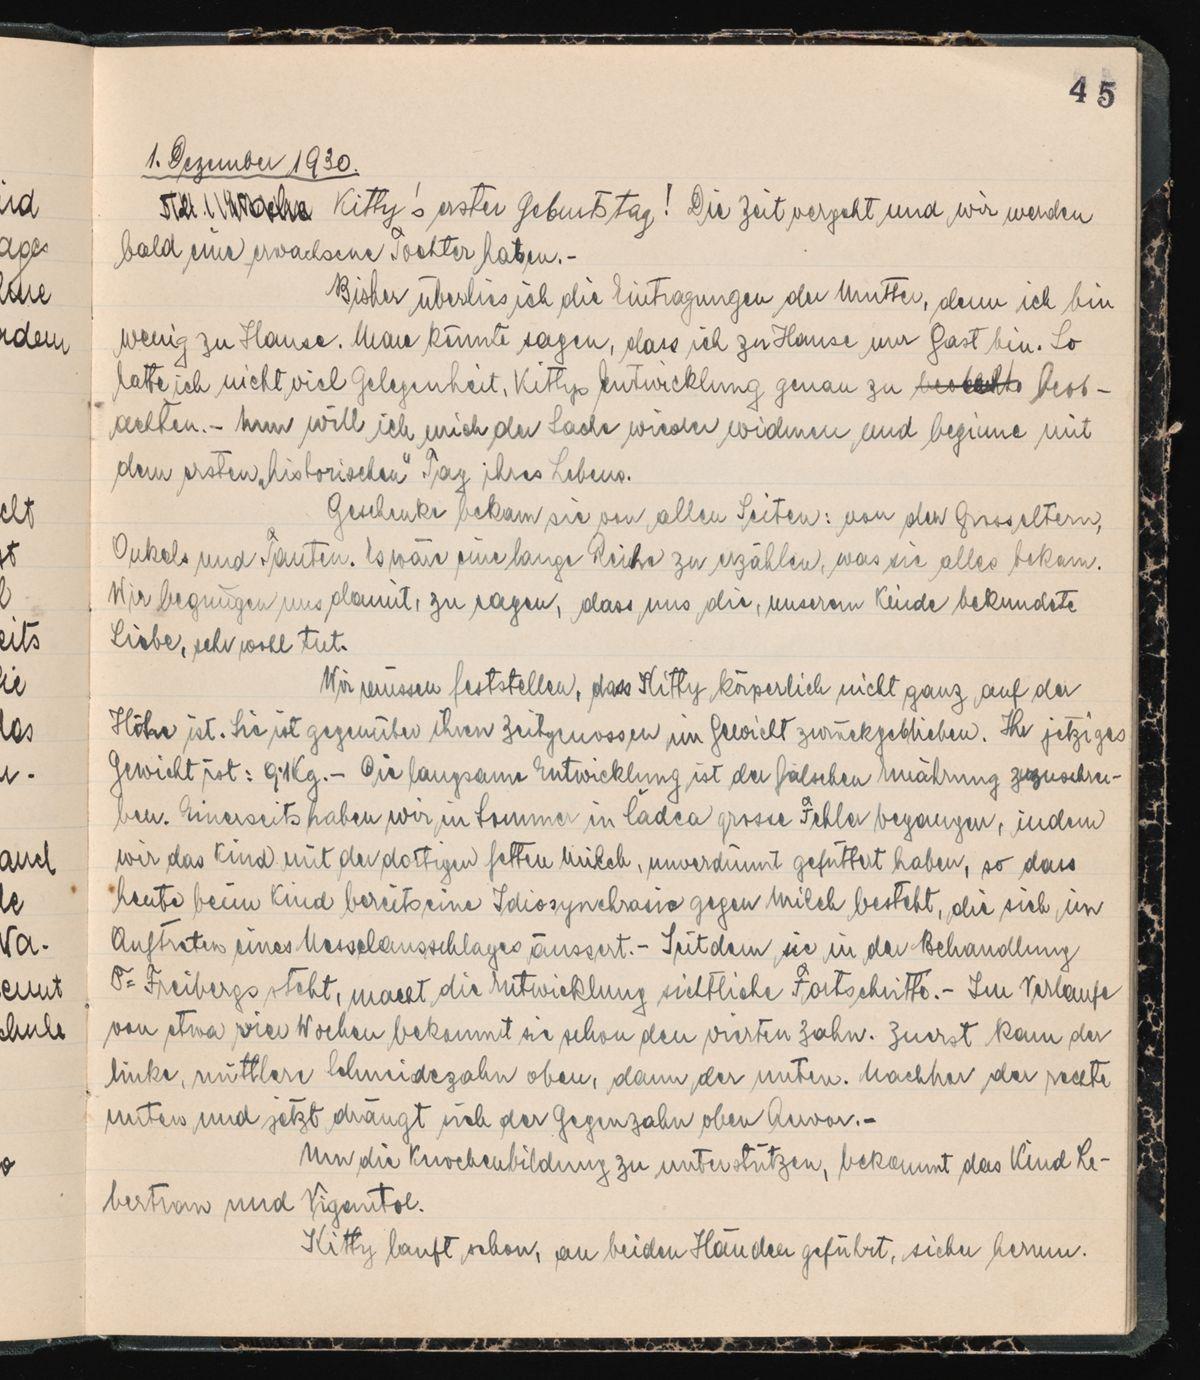 45
1. Dezember 1930.
Kitty's erster Geburtstag! Die Zeit vergeht und wir werden
bald eine erwachsene Tochter haben.-
Bisher überlies ich die Eintragungen der Mutter, denn ich bin
wenig zu Hause. Man könnte sagen, dass ich zu Hause nur Gast bin. So
hatte ich nicht viel Gelegenheit, Kittys Entwicklung genau zu beob-
achten.- Nun will ich mich der Sache wieder widmen und beginne mit
dem ersten „historischen" Tag ihres Lebens.
Geschenke bekam sie von allen Seiten: von den Grosseltern,
Onkels und Tanten. Es wäre eine lange Reihe zu erzählen, was sie alles bekam.
Wir begnügen uns damit, zu sagen, dass uns die, unserem Kinde bekundete
Liebe, sehr wohl tut.
Wir müssen feststellen, dass Kitty körperlich nicht ganz auf der
Höhe ist. Sie ist gegenüber ihren Zeitgenossen im Gewicht zurückgeblieben. Ihr jetziges
Gewicht ist: 9·1Kg.- Die langsame Entwicklung ist der falschen Ernährung zuzuschrei-
ben. Einerseits haben wir im Sommer in Čadca grosse Fehler begangen, indem
wir das Kind mit der dortigen fetten Milch, unverdünnt gefüttert haben, so dass
heute beim Kind bereits eine Idiosynchrasie gegen Milch besteht, die sich im
Auftreten eines Nesselausschlages äussert.- Seitdem sie in der Behandlung
Dr Freibergs steht, macht die Entwicklung sichtliche Fortschritte.- Im Verlaufe
von etwa vier Wochen bekommt sie schon den vierten Zahn. Zuerst kam der
linke, mittlere Schneidezahn oben, dann der unten. Nachher der rechte
unten und jetzt drängt sich der Gegenzahn oben hervor.-
Um die Knochenbildung zu unterstützen, bekommt das Kind Le-
bertran und Vigantol.
Kitty lauft schon, an beiden Händen geführt, sicher herum.